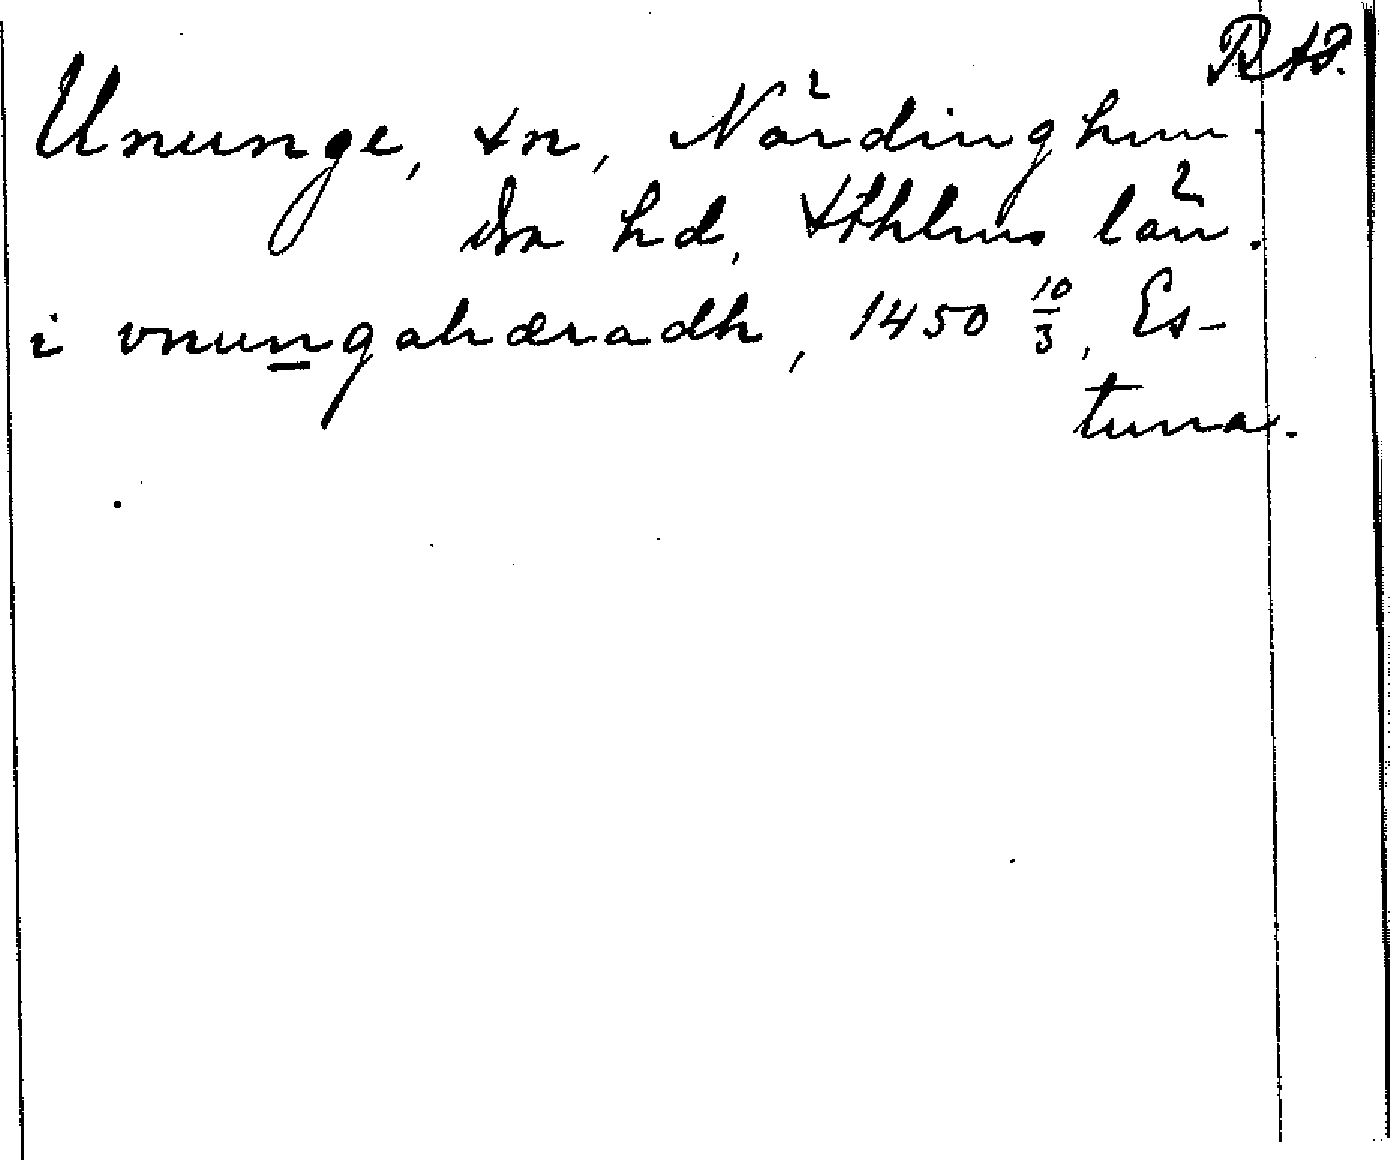 RAP.
Ununge, sn, Närdinghun-
dra hd, Sthlms län.
i vnungahæradh, 1450 10/3, Es-
tuna.